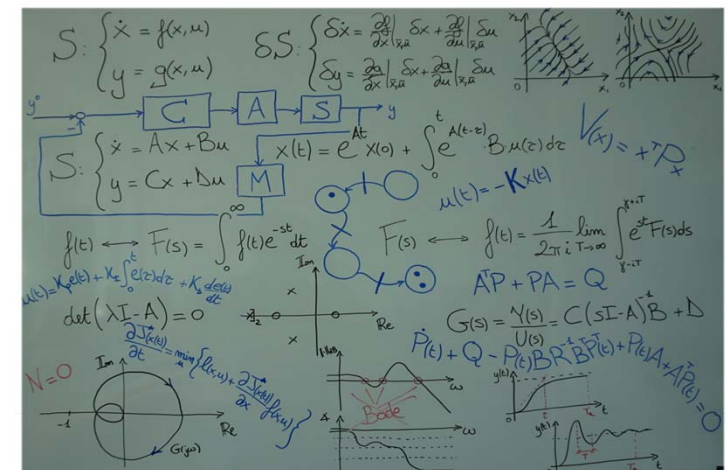 S: { ẋ = f(x,u)
y = g(x,u)
δS: { δẋ = ∂f/∂x|x̄,ū δx + ∂f/∂u|x̄,ū δu
δy = ∂g/∂x|x̄,ū δx + ∂g/∂u|x̄,ū δu
x₂
0
x₁
x₂
0
x₁
y°
-
C
A
S
y
M
S: { ẋ = Ax + Bu
y = Cx + Du
x(t) = e^At x(0) + ∫₀^t e^A(t-τ) Bu(τ)dτ
V(x) = x^T P x
u(t) = -Kx(t)
f(t) ↔ F(s) = ∫₀^∞ f(t)e^-st dt
F(s) ↔ f(t) = 1/2πi lim T→∞ ∫γ-iT^γ+iT e^st F(s)ds
u(t) = Kp e(t) + KI ∫₀^t e(τ)dτ + Kd de(t)/dt
A^T P + PA = Q
det(λI-A) = 0
Im
Re
G(s) = Y(s)/U(s) = C(sI-A)^-1 B + D
Ṗ(t) + Q - P(t)BR^-1 B^T P^T(t) + P(t)A + A^T P(t) = 0
∂J*(x(t))/∂t = min u { l(x,u) + ∂J*(x(t))/∂x f(x,u) }
N=0
Im
-1
Re
G(jω)
ω
Bode
ω
y(t)
0
t
y(t)
T
t